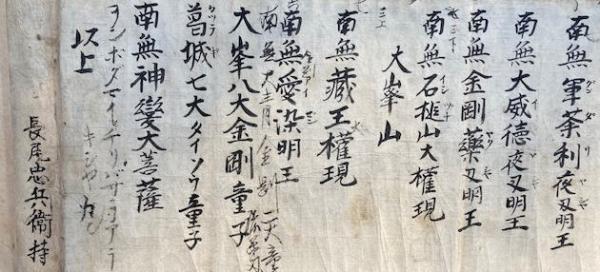 南無軍荼利夜叉明王
南無大威徳夜叉明王
南無金剛藥叉明王
南無石槌山大権現
大峯山
南無藏王權現
南無愛染明王
大峯八大金剛童子
葛城七大タイソウ童子
南無神變大菩薩
以上
長尾忠兵衛持